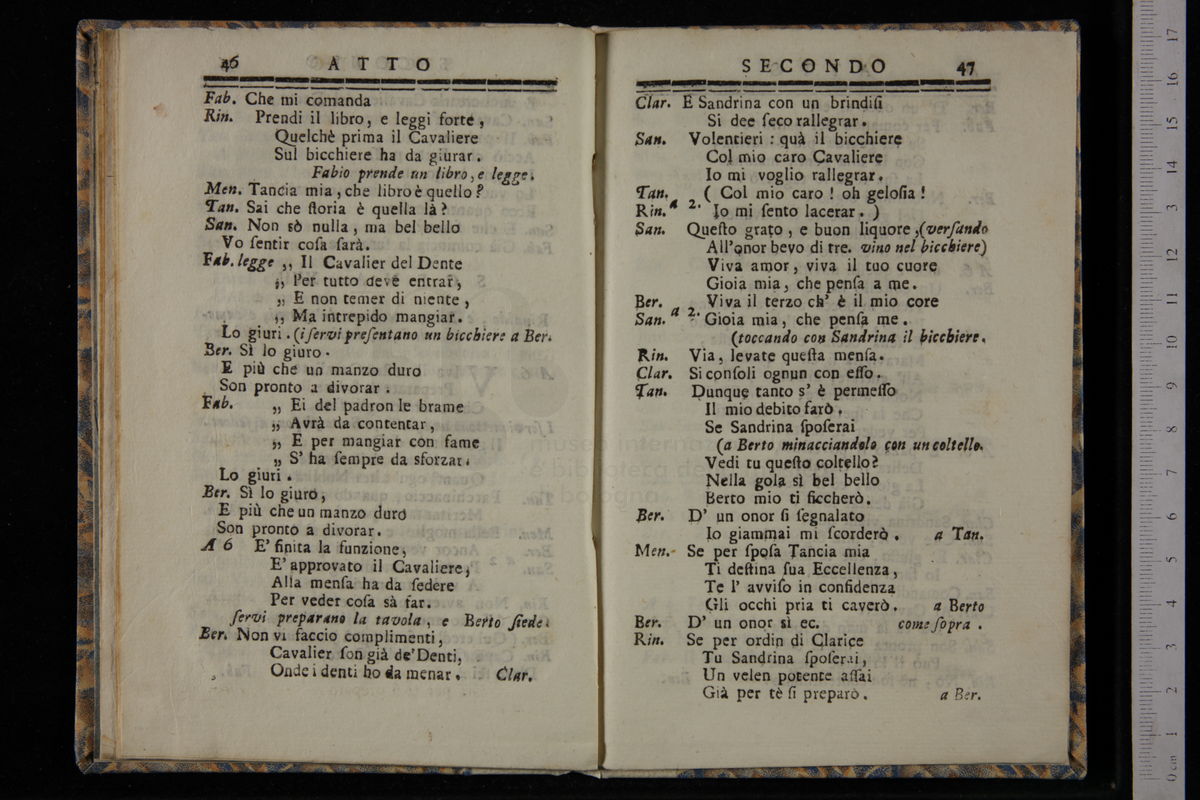 46 ATTO
Fab. Che mi comanda
Rin. Prendi il libro, e leggi forte,
Quelchè prima il Cavaliere
Sul bicchiere ha da giurar.
Fabio prende un libro, e legge.
Men. Tancia mia, che libro è quello?
Tan. Sai che ſtoria è quella là?
San. Non sò nulla, ma bel bello
Vo ſentir coſa ſarà.
Fab. legge ,, Il Cavalier del Dente
,, Per tutto deve entrar,
,, E non temer di niente,
,, Ma intrepido mangiar.
Lo giuri. (i ſervi preſentano un bicchiere a Ber.
Ber. Sì lo giuro.
E più che un manzo duro
Son pronto a divorar.
Fab. ,, Ei del padron le brame
,, Avrà da contentar,
,, E per mangiar con fame
,, S' ha ſempre da sforzar.
Lo giuri.
Ber. Sì lo giuro,
E più che un manzo duro
Son pronto a divorar.
A 6 E' finita la funzione,
E' approvato il Cavaliere,
Alla menſa ha da ſedere
Per veder coſa sà far.
ſervi preparano la tavola, e Berto ſiede.
Ber. Non vi faccio complimenti,
Cavalier ſon già de' Denti,
Onde i denti ho da menar. Clar.
SECONDO 47
Clar. E Sandrina con un brindiſi
Si dee ſeco rallegrar.
San. Volentieri: quà il bicchiere
Col mio caro Cavaliere
Io mi voglio rallegrar.
Tan. ( Col mio caro! oh geloſia!
Rin. a 2. Io mi ſento lacerar. )
San. Queſto grato, e buon liquore, (verſando
All'onor bevo di tre. vino nel bicchiere)
Viva amor, viva il tuo cuore
Gioia mia, che penſa a me.
Ber. Viva il terzo ch' è il mio core
San. a 2. Gioia mia, che penſa me.
(toccando con Sandrina il bicchiere.
Rin. Via, levate queſta menſa.
Clar. Si conſoli ognun con eſſo.
Tan. Dunque tanto s' è permeſſo
Il mio debito farò.
Se Sandrina ſpoſerai
(a Berto minacciandolo con un coltello.
Vedi tu queſto coltello?
Nella gola sì bel bello
Berto mio ti ficcherò.
Ber. D' un onor ſi ſegnalato
Io giammai mi ſcorderò. a Tan.
Men. Se per ſpoſa Tancia mia
Ti deſtina ſua Eccellenza,
Te l' avviſo in confidenza
Gli occhi pria ti caverò. a Berto
Ber. D' un onor sì ec. come ſopra.
Rin. Se per ordin di Clarice
Tu Sandrina ſpoſerai,
Un velen potente aſſai
Già per tè ſi preparò. a Ber.
0 cm 1 2 3 4 5 6 7 8 9 10 11 12 13 14 15 16 17